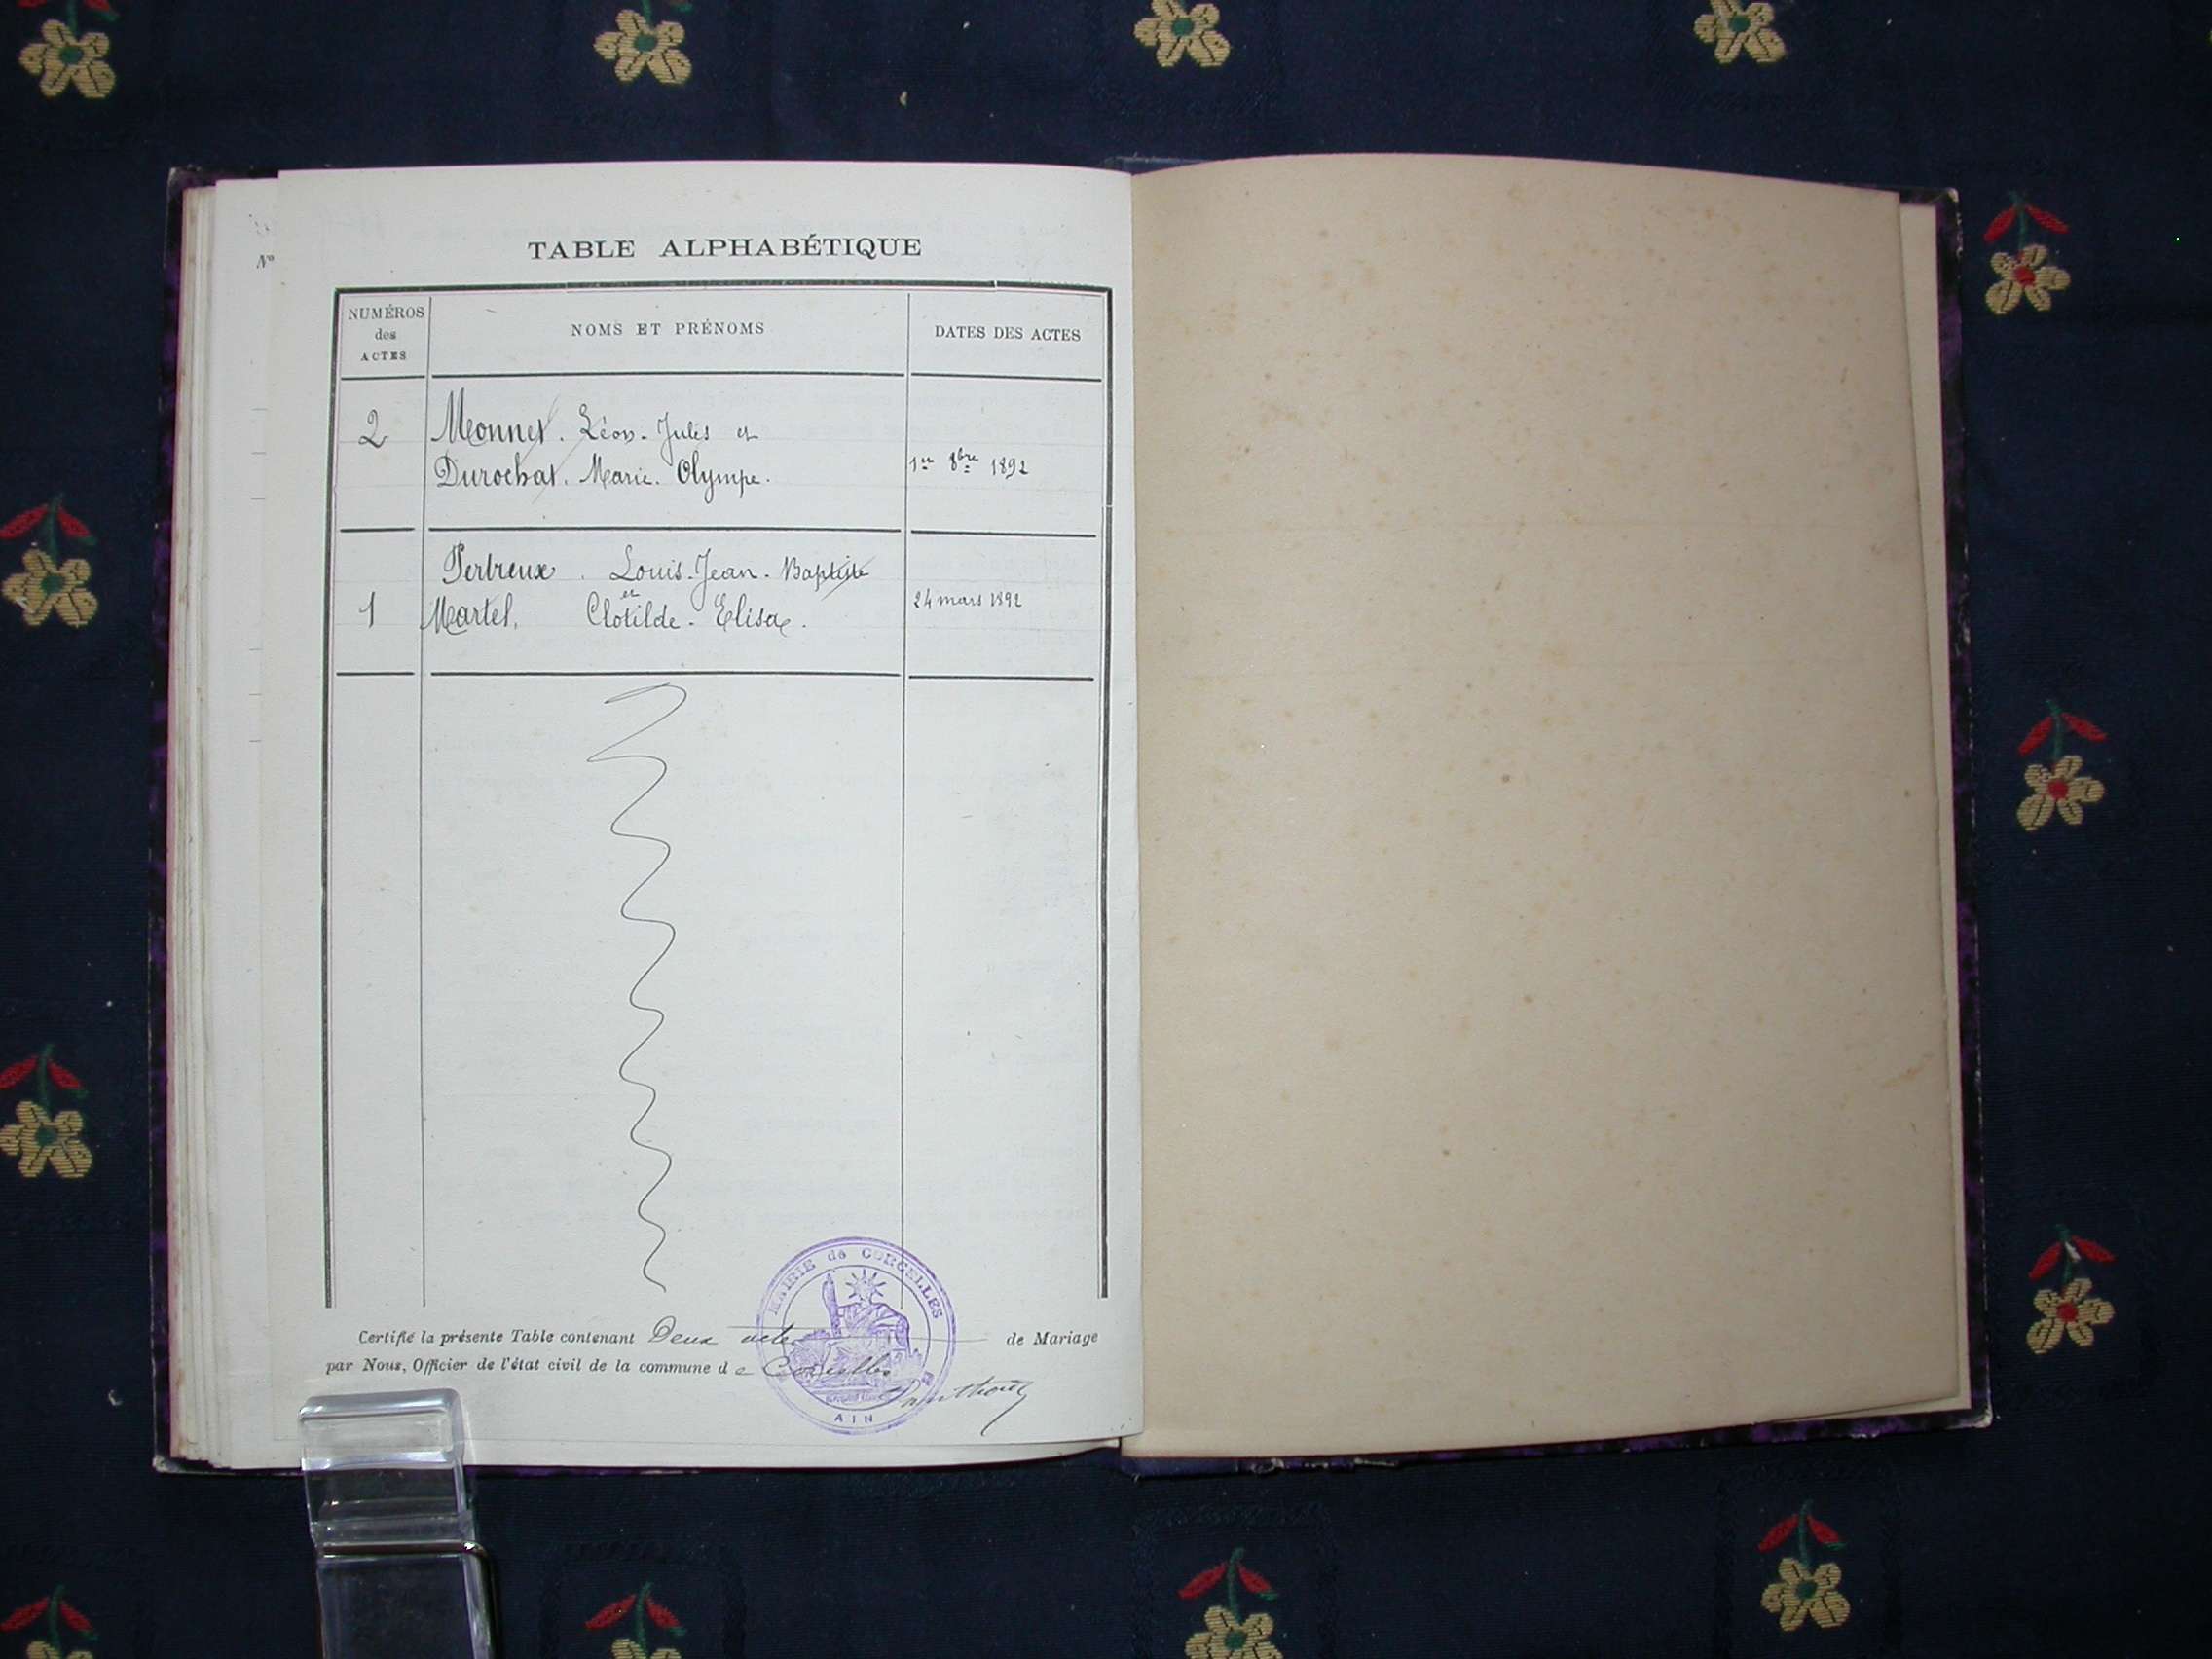 N°
TABLE ALPHABÉTIQUE
NUMÉROS
des
ACTES
NOMS ET PRÉNOMS
DATES DES ACTES
2
Monnet. Léon-Jules et
Durochat. Marie. Olympe.
1er 8bre 1892
Perbreux. Louis-Jean-Baptiste
et
1
Martel, Clotilde-Elisa.
24 mars 1892
Certifié la présente Table contenant Deux actes de Mariage
par Nous, Officier de l'état civil de la commune de Corcelles
MAIRIE de CORCELLES
AIN